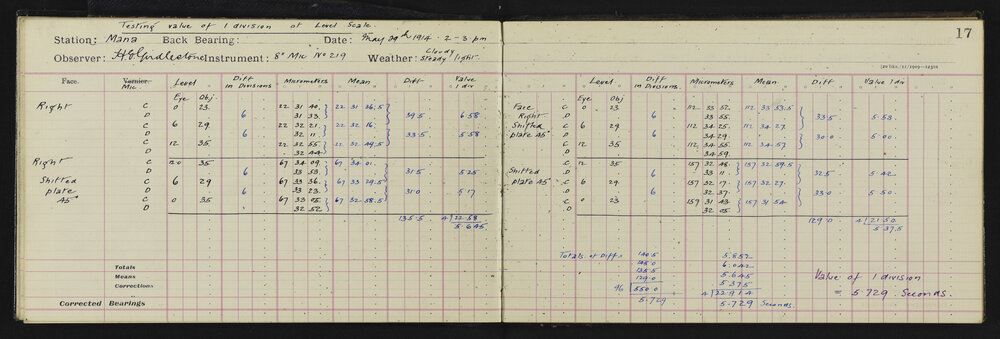 Testing value of 1 division of Level Scale.
17
Station: Mana Back Bearing: Date: May 29th 1914 2-3 pm
Observer: H.E. Girdlestone Instrument: 8" Mic No 219 Weather: Cloudy Steady light
Face. Vernier. Mic Level Diff in Divisions Micrometers Mean Diff. Value 1 div
Eye Obj
Right C 0 23. 22 31 40. 22 31 36.5
D 6 31 33. 39.5 6.58
C 6 29 22 32 21. 22 32 16.
D 6 32 11. 33.5 5.58
C 12 35 22 32 55 22 32 49.5
D 32 44.
Right C 12.0 35 67 34 09. 67 34 01.
D 6 33 53. 31.5 5.25
Shifted C 6 29 67 33 36. 67 33 29.5
plate D 6 33 23. 31.0 5.17
45° C 0 35 67 33 05. 67 32 58.5
D 32 52.
135.5 4 22.58
5.645
Totals
Means
Corrections
Corrected Bearings
Level Diff in Divisions. Micrometers Mean. Diff Value 1 div
Eye Obj
Face C 0 23 112 33 52. 112 33 53.5
Right D 6 33 55. 33.5 5.58
Shifted C 6 29 112 34 25. 112 34 27.
plate 45° D 6 34 29. 30.0 5.00
C 12 35 112 34 55. 112 34 57.
D 34 59.
C 12 35 157 32 48. 157 32 59.5
Shifted D 6 33 11. 32.5 5.42
plate 45° C 6 29. 157 32 17. 157 32 27.
D 6 32 37. 33.0 5.50
C 0 23 157 31 43. 157 31 54
D 32 05.
129.0 4 21.50
5.375
Totals of Diffs 140.5 5.852
145.0 6.042
135.5 5.645
129.0 5.375
96 550.0 4 22.914
5.729 5.729 Seconds.
Value of 1 division
= 5.729 Seconds.